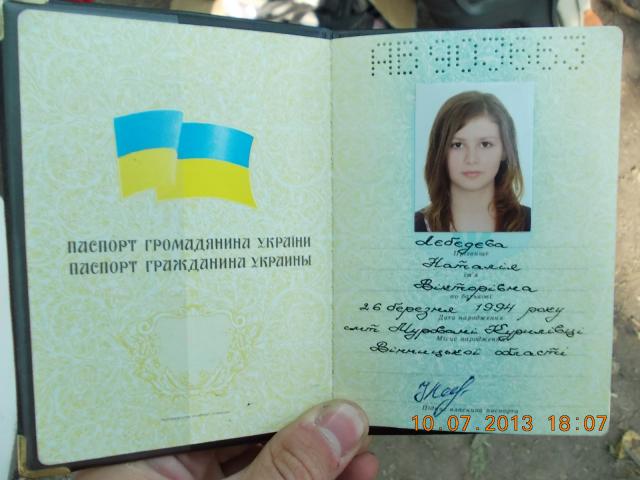 ПАСПОРТ ГРОМАДЯНИНА УКРАЇНИ
ПАСПОРТ ГРАЖДАНИНА УКРАИНЫ
АВ 903663
Лебедєва
Прізвище
Наталія
Ім'я
Вікторівна
по батькові
26 березня 1994 року
Дата народження
смт Муровані Курилівці
Місце народження
Вінницької області
Підпис власника паспорта
10.07.2013 18:07